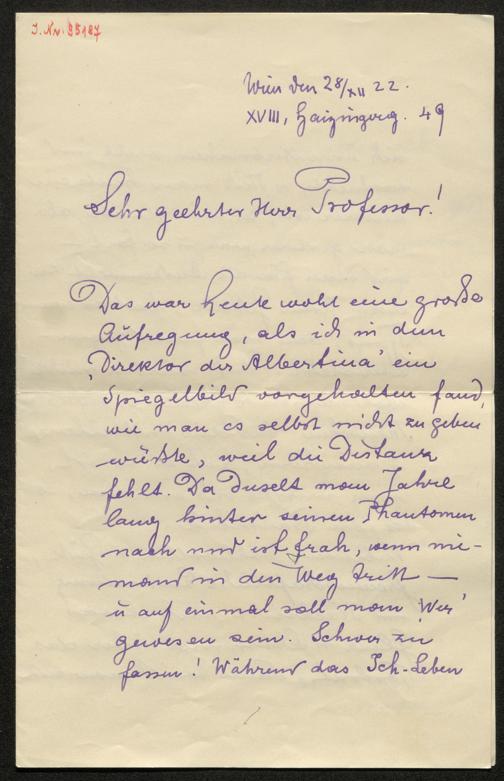 J. Nr. 95187
Wien den 28/XII 22.
XVIII, Haizingerg. 49
Sehr geehrter Herr Professor!
Das war heute wohl eine große
Aufregung, als ich in dem
'Direktor der Albertina' ein
Spiegelbild vorgehalten fand,
wie man es selbst nicht zu geben
wüßte, weil die Distanz
fehlt. Da duselt man Jahre
lang hinter seinen Phantomen
nach und ist froh, wenn nie-
mand in den Weg tritt —
u auf einmal soll man 'Wer'
gewesen sein. Schwer zu
fassen! Während das Ich-Leben